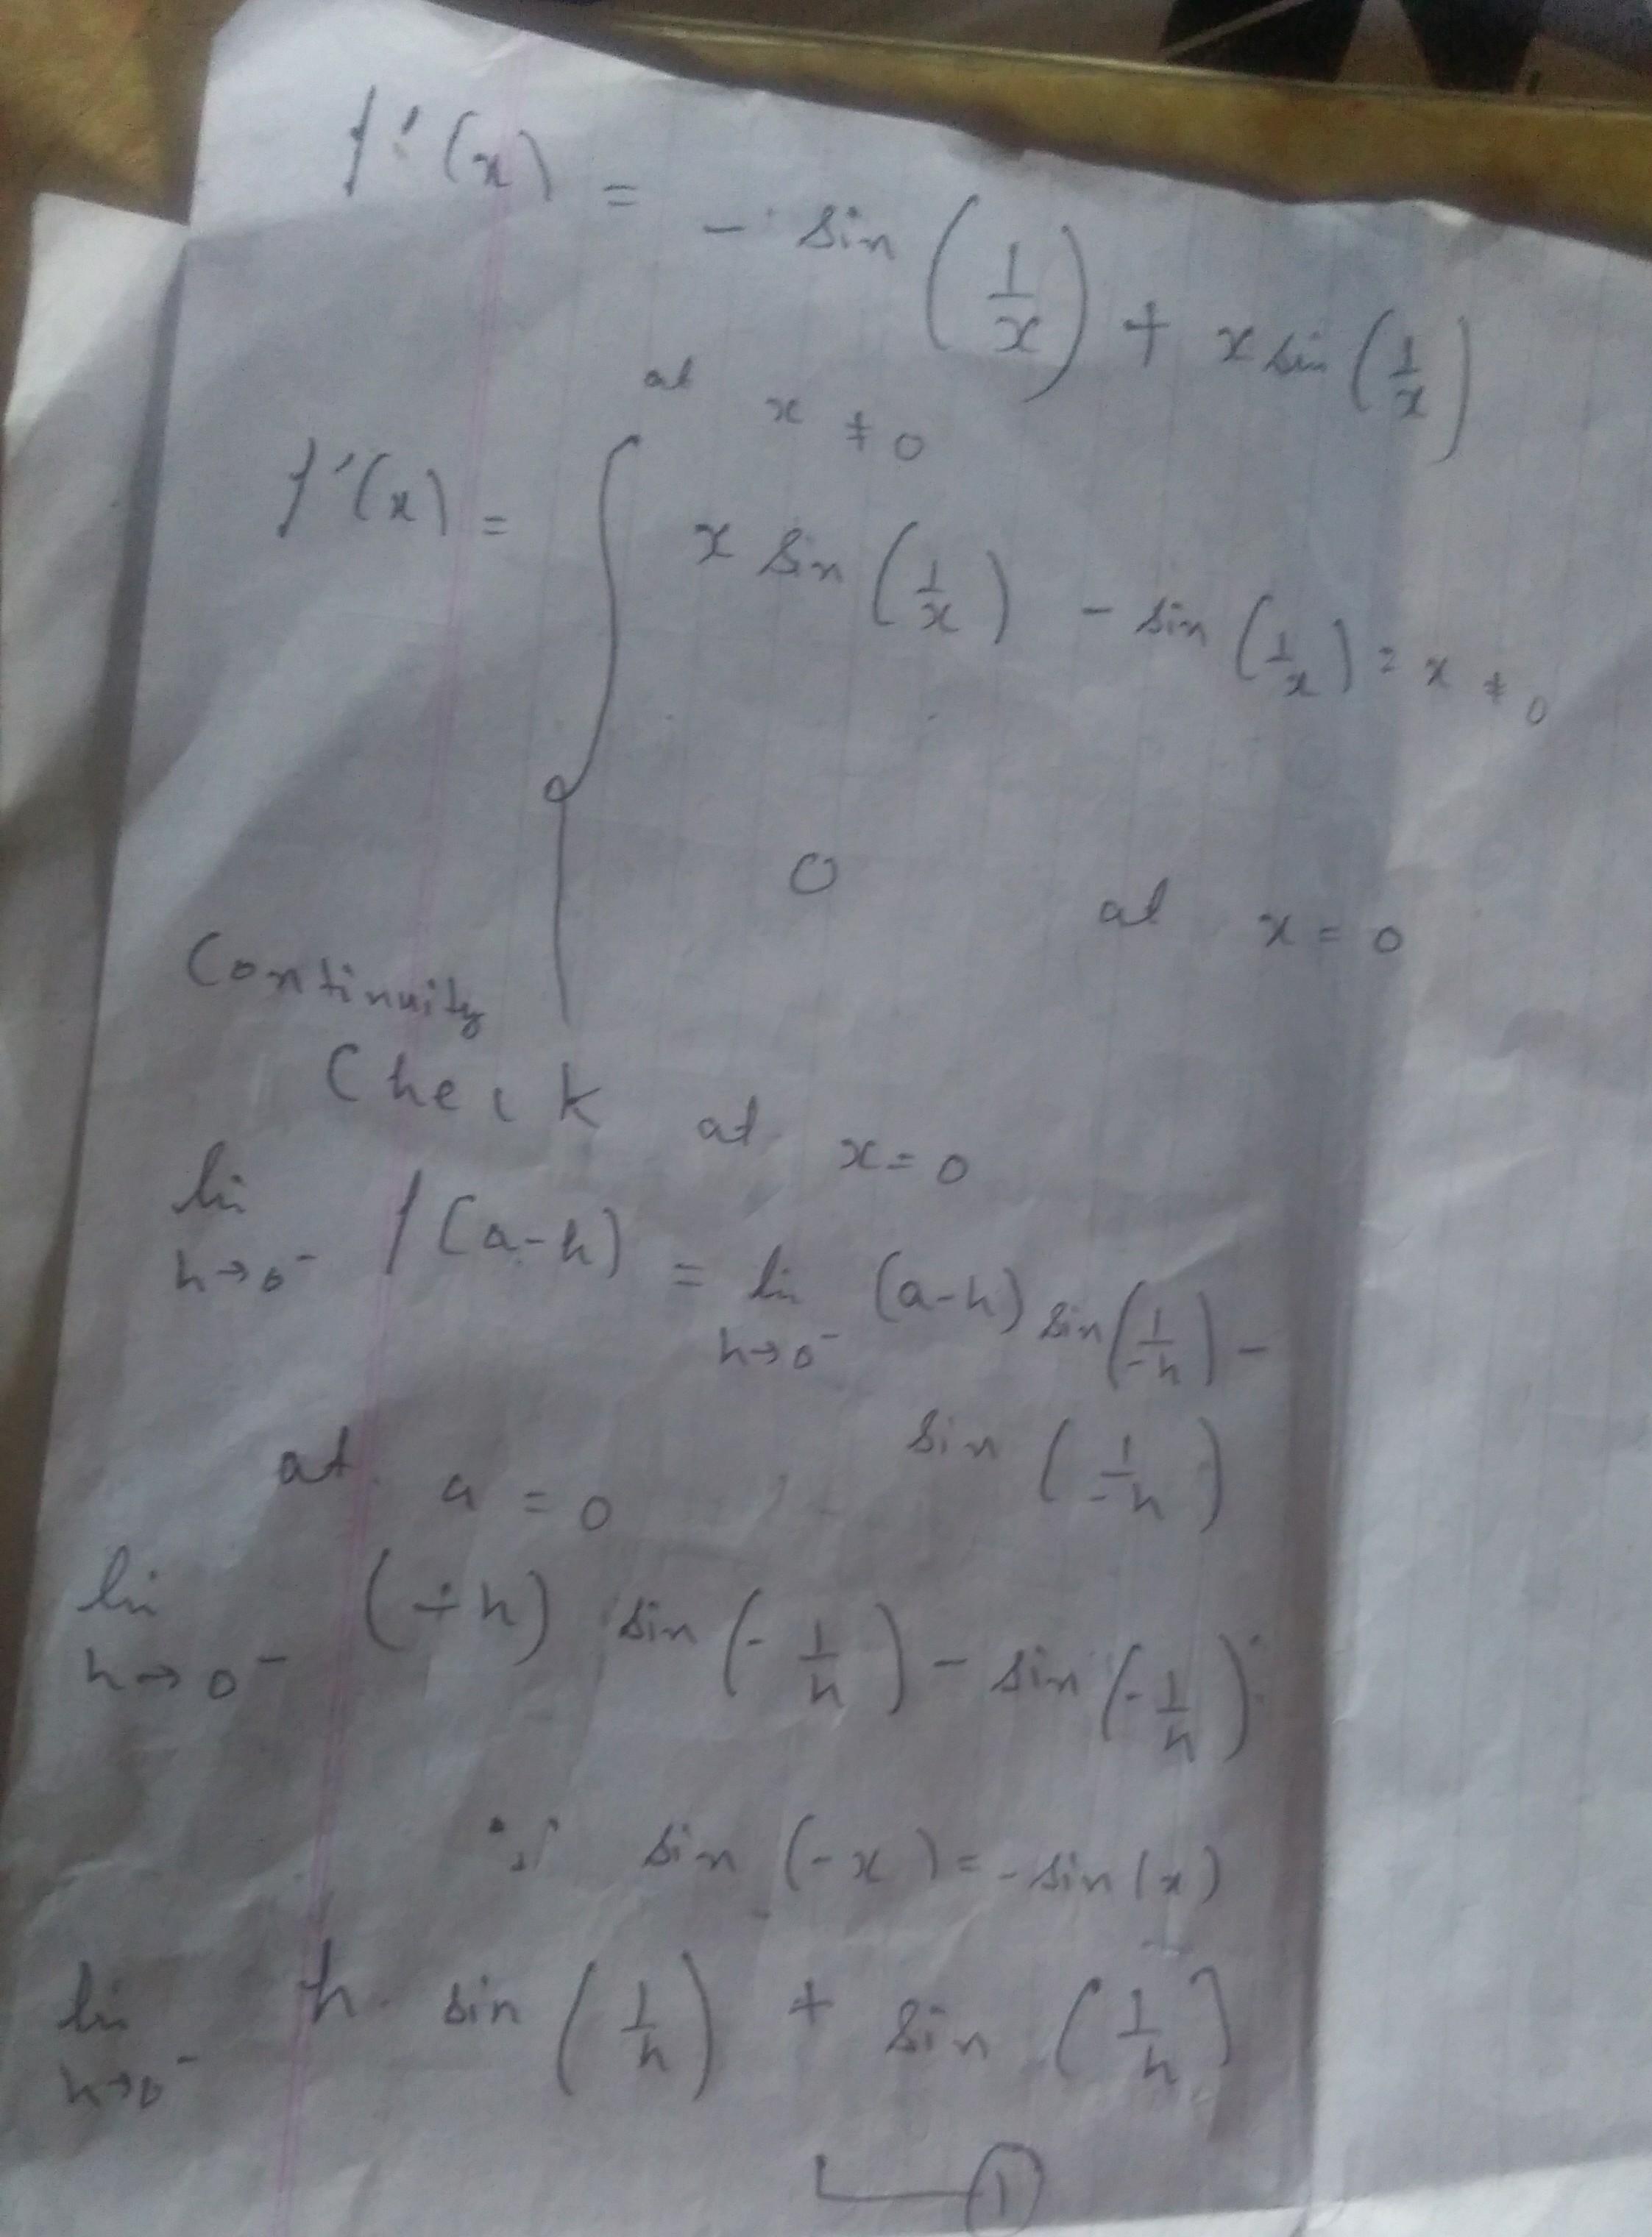 f'(x) = - sin (1/x) + x sin (1/x)
at x ≠ 0
f'(x) = { x sin (1/x) - sin (1/x) : x ≠ 0
0 at x = 0
Continuity
Check at x = 0
li h→0⁻ f(a-h) = li h→0⁻ (a-h) sin(1/-h) -
at a = 0 sin (1/-h)
li h→0⁻ (-h) sin (- 1/h) - sin (- 1/h)
∵ sin (-x) = - sin(x)
li h→0⁻ h sin (1/h) + sin (1/h)
①